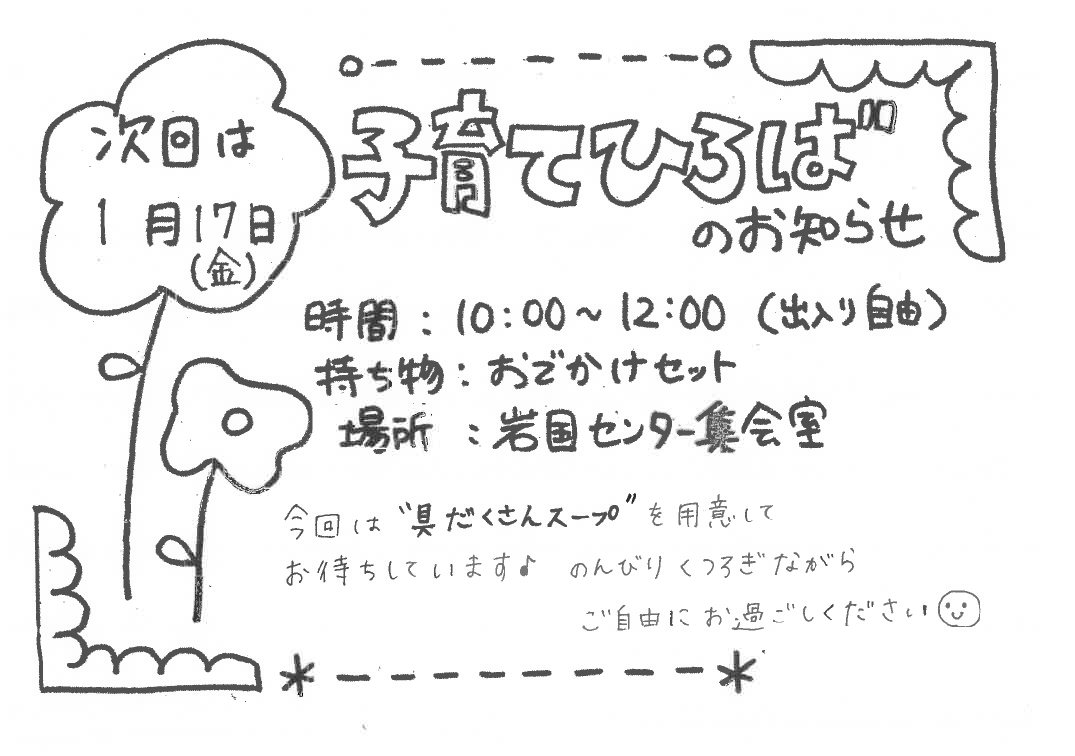 次回は
1月17日
(金)
子育てひろば
のお知らせ
時間：10:00～12:00 (出入り自由)
持ち物：おでかけセット
場所：岩国センター集会室
今回は“具だくさんスープ”を用意して
お待ちしています♪ のんびりくつろぎながら
ご自由にお過ごしください